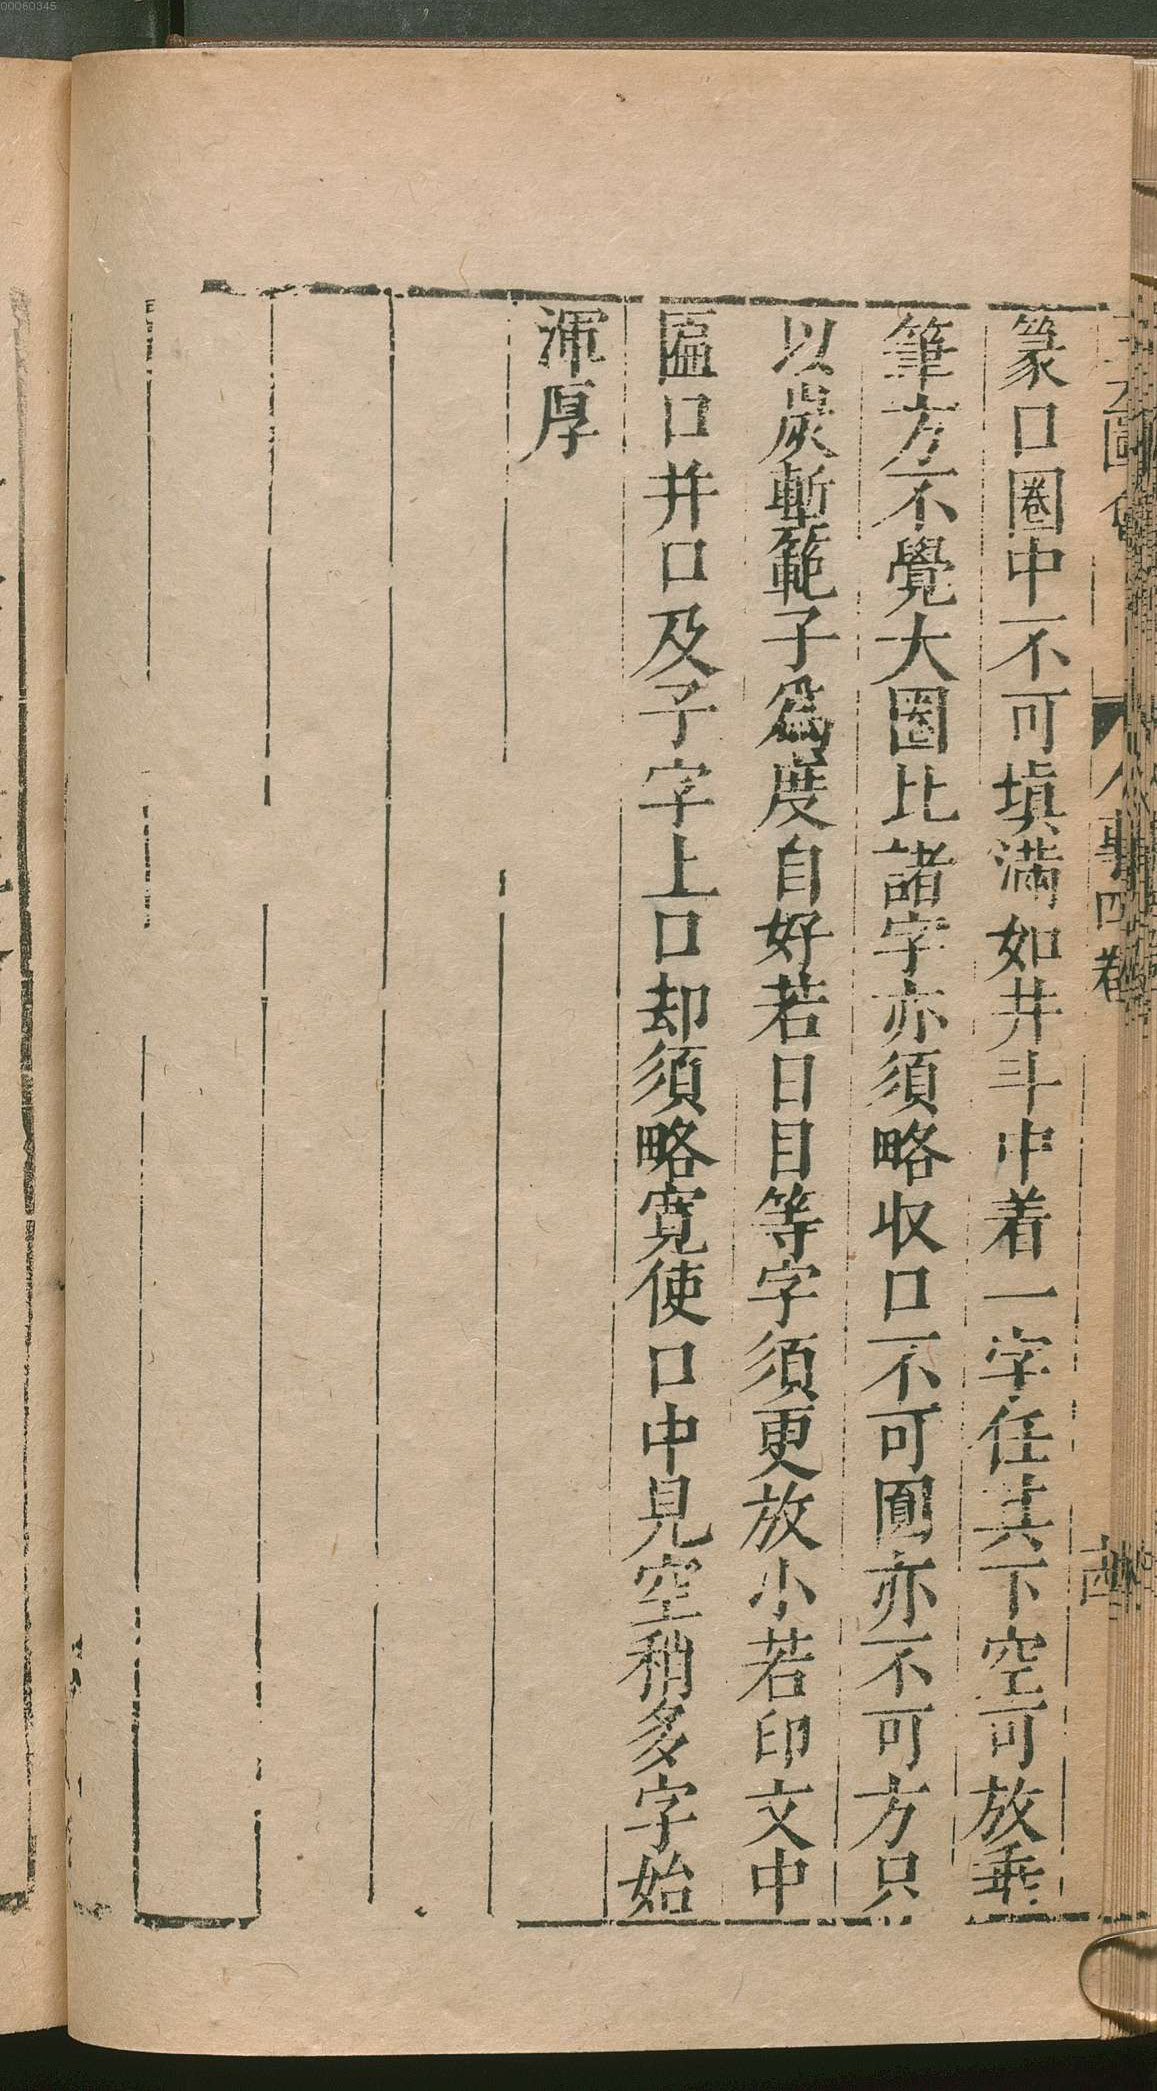 篆口圈中不可填滿如井斗中着一字任其下空可放垂
筆方不覺大圈比諸字亦須略收口不可圓亦不可方只
以炭塹範子爲度自好若日目等字須更放小若印文中
匾口并口及子字上口却須略寬使口中見空稍多字始
渾厚
人事四卷
00060345